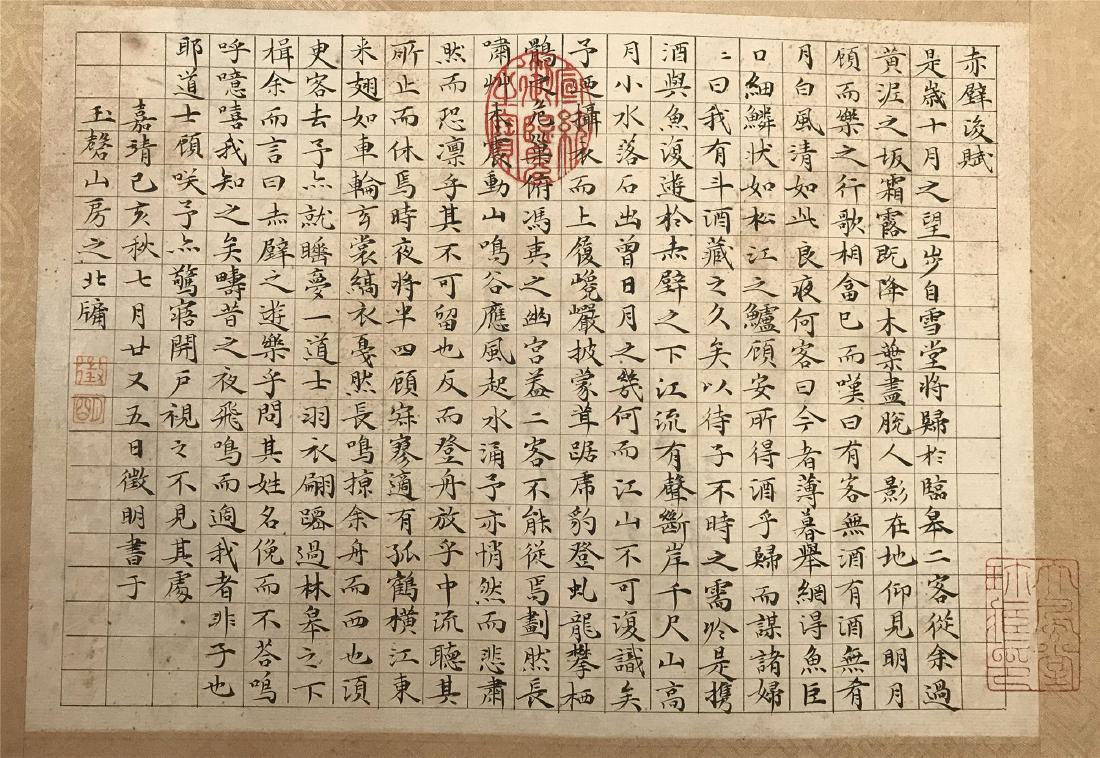 赤壁後賦
是歲十月之望步自雪堂將歸於臨皋二客從余過
黃泥之坂霜露既降木葉盡脫人影在地仰見明月
顧而樂之行歌相畣已而嘆曰有客無酒有酒無肴
月白風清如此良夜何客曰今者薄暮舉網得魚巨
口細鱗狀如松江之鱸顧安所得酒乎歸而謀諸婦
〻曰我有斗酒藏之久矣以待子不時之需於是攜
酒與魚復遊於赤壁之下江流有聲斷岸千尺山高
月小水落石出曾日月之幾何而江山不可復識矣
予廼攝衣而上履巉巖披蒙茸踞虎豹登虬龍攀栖
鶻之危巢俯馮夷之幽宮蓋二客不能從焉劃然長
嘯艸木震動山鳴谷應風起水涌予亦悄然而悲肅
然而恐凜乎其不可留也反而登舟放乎中流聽其
所止而休焉時夜將半四顧寂寥適有孤鶴橫江東
來翅如車輪玄裳縞衣戛然長鳴掠余舟而西也須
臾客去予亦就睡夢一道士羽衣翩躚過林皋之下
揖余而言曰赤壁之遊樂乎問其姓名俛而不答嗚
呼噫嘻我知之矣疇昔之夜飛鳴而過我者非子也
耶道士顧咲予亦驚寤開戶視之不見其處
嘉靖己亥秋七月廿又五日徵明書于
玉磬山房之北牖
徵
明